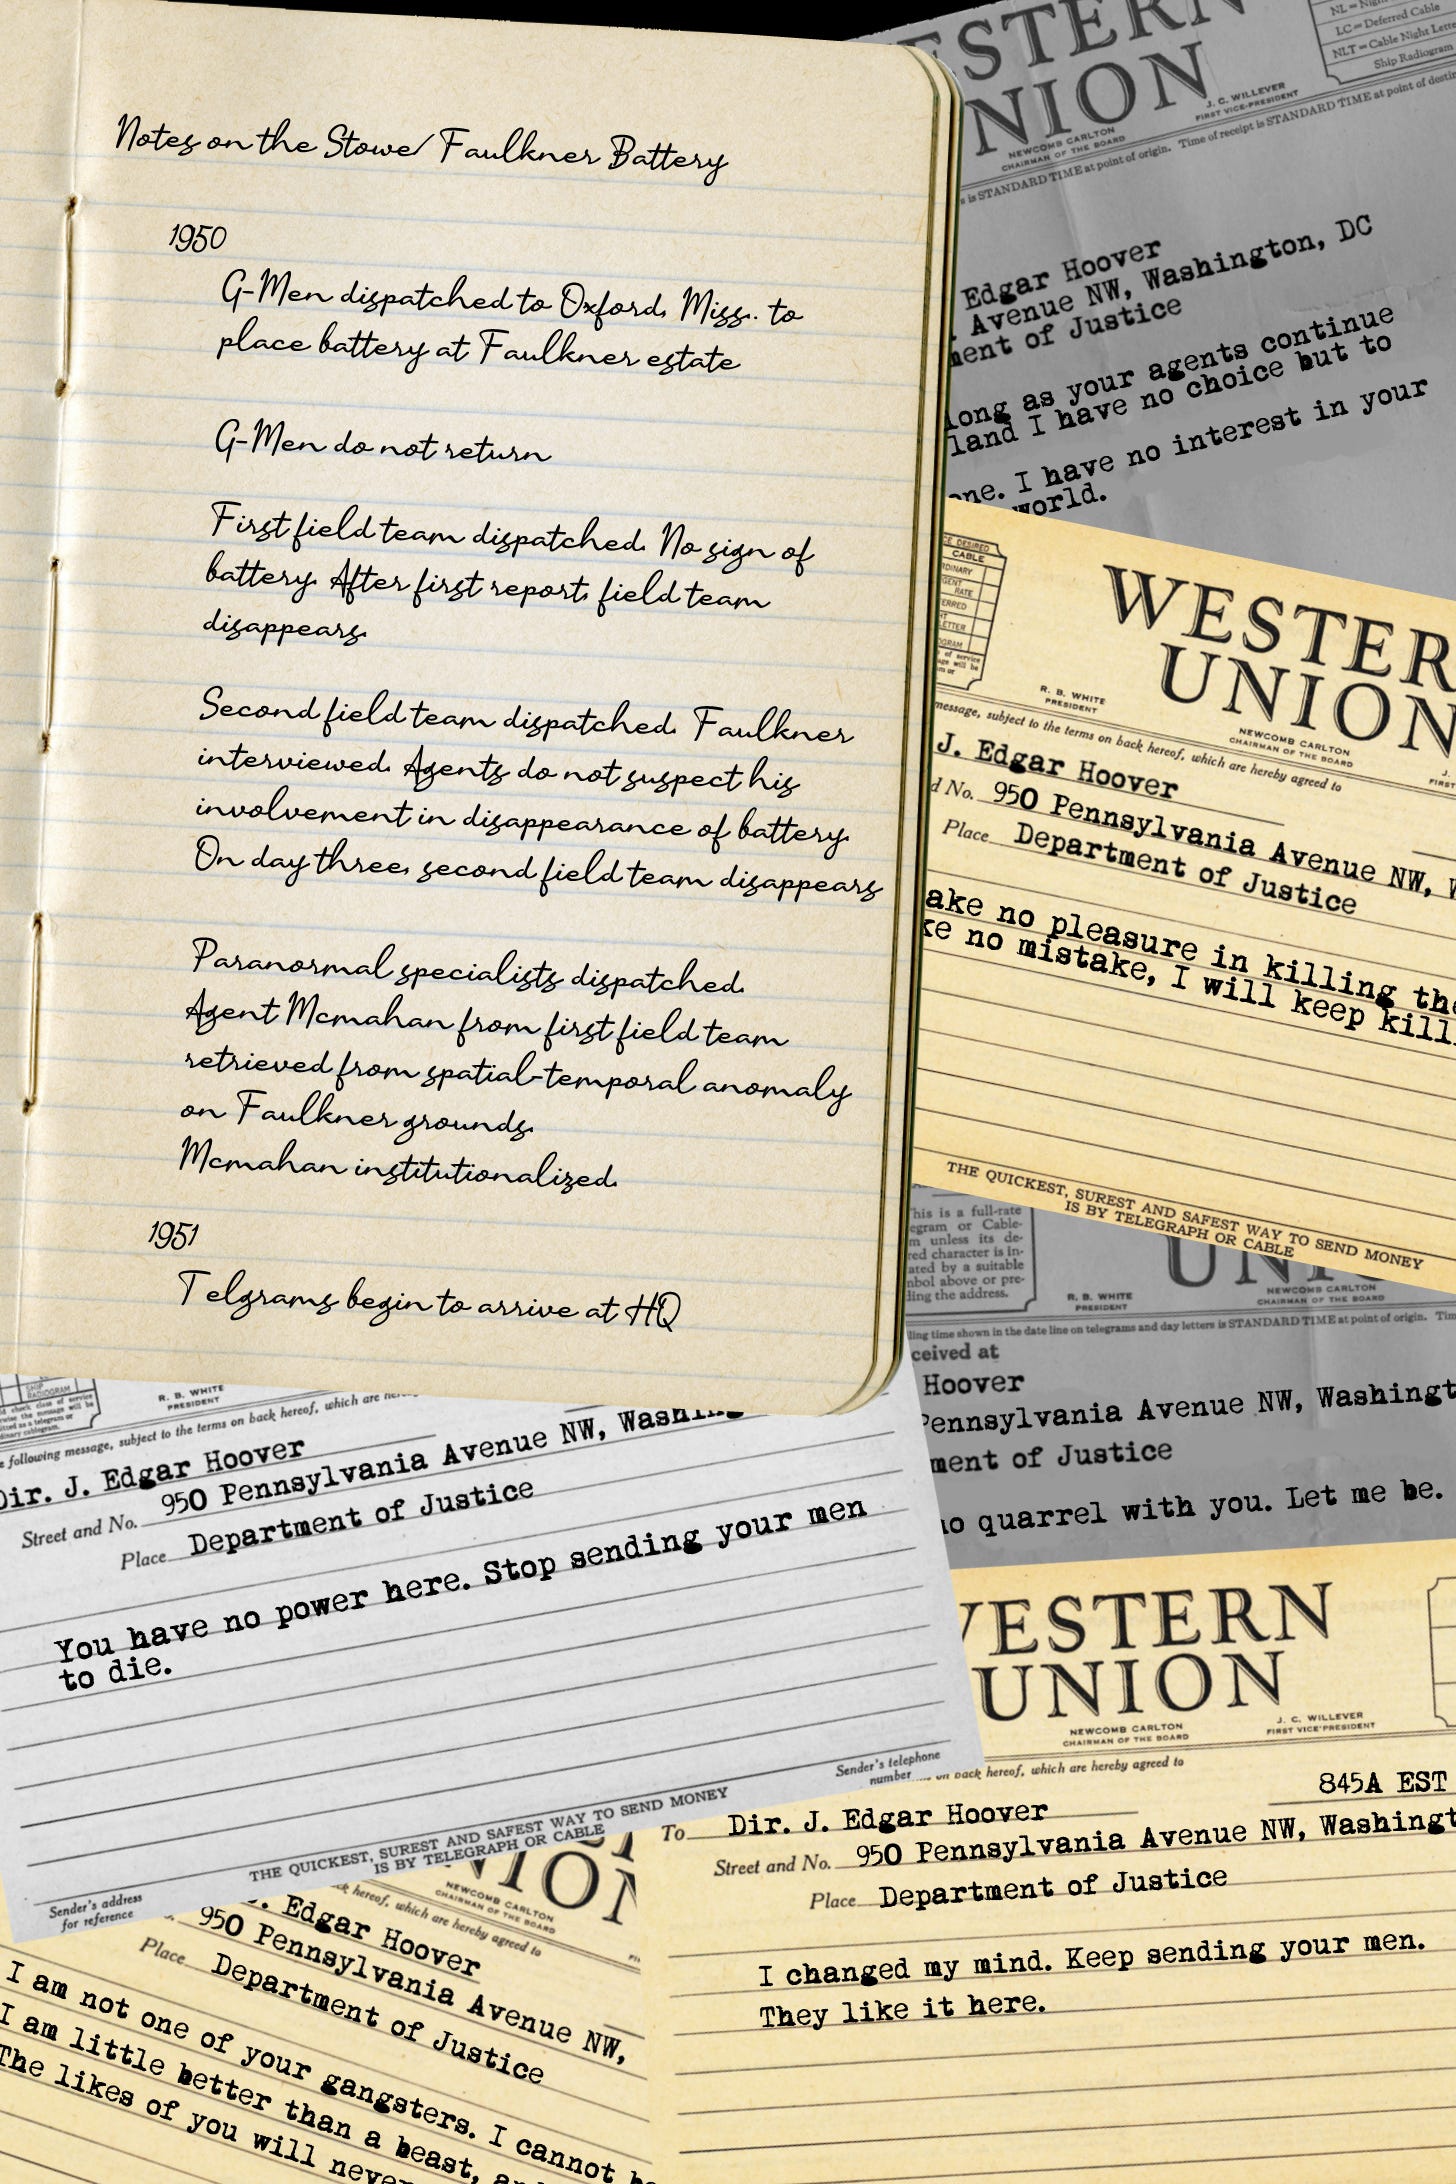 Notes on the Stowe/ Faulkner Battery
1950
G-Men dispatched to Oxford, Miss. to
place battery at Faulkner estate
G-Men do not return
First field team dispatched. No sign of
battery. After first report, field team
disappears.
Second field team dispatched. Faulkner
interviewed. Agents do not suspect his
involvement in disappearance of battery.
On day three, second field team disappears
Paranormal specialists dispatched.
Agent Mcmahan from first field team
retrieved from spatial-temporal anomaly
on Faulkner grounds.
Mcmahan institutionalized.
1951
Telgrams begin to arrive at HQ
ESTERN
NION
NEWCOMB CARLTON
CHAIRMAN OF THE BOARD
J. C. WILLEVER
FIRST VICE-PRESIDENT
LC=Deferred Cable
NLT=Cable Night Lette
Ship Radiogram
is STANDARD TIME at point of origin. Time of receipt is STANDARD TIME at point of destin
Edgar Hoover
Avenue NW, Washington, DC
ment of Justice
long as your agents continue
land I have no choice but to
one. I have no interest in your
world.
CE DESIRED
CABLE
RDINARY
GENT
RATE
FERRED
LETTER
OGRAM
WESTER
UNION
R. B. WHITE
PRESIDENT
NEWCOMB CARLTON
CHAIRMAN OF THE BOARD
message, subject to the terms on back hereof, which are hereby agreed to
J. Edgar Hoover
d No. 950 Pennsylvania Avenue NW, W
Place Department of Justice
ake no pleasure in killing the
ke no mistake, I will keep kill
THE QUICKEST, SUREST AND SAFEST WAY TO SEND MONEY
IS BY TELEGRAPH OR CABLE
This is a full-rate
egram or Cable-
m unless its de-
red character is in-
ated by a suitable
mbol above or pre-
ding the address.
UNI
R. B. WHITE
PRESIDENT
NEWCOMB CARLTON
CHAIRMAN OF THE BOARD
ling time shown in the date line on telegrams and day letters is STANDARD TIME at point of origin. Tim
ceived at
Hoover
Pennsylvania Avenue NW, Washingt
ment of Justice
no quarrel with you. Let me be.
SHIP
RADIOGRAM
R. B. WHITE
PRESIDENT
e following message, subject to the terms on back hereof, which are here
Dir. J. Edgar Hoover
Street and No. 950 Pennsylvania Avenue NW, Washing
Place Department of Justice
You have no power here. Stop sending your men
to die.
Sender's telephone
number
THE QUICKEST, SUREST AND SAFEST WAY TO SEND MONEY
IS BY TELEGRAPH OR CABLE
Sender's address
for reference
NION
NEWCOMB CARLTON
CHAIRMAN OF THE BOARD
back hereof, which are hereby agreed to
. Edgar Hoover
950 Pennsylvania Avenue NW,
Place Department of Justice
I am not one of your gangsters. I cannot be
I am little better than a beast, an
The likes of you will never
WESTERN
UNION
NEWCOMB CARLTON
CHAIRMAN OF THE BOARD
J. C. WILLEVER
FIRST VICE-PRESIDENT
on back hereof, which are hereby agreed to
845A EST
To Dir. J. Edgar Hoover
Street and No. 950 Pennsylvania Avenue NW, Washingt
Place Department of Justice
I changed my mind. Keep sending your men.
They like it here.